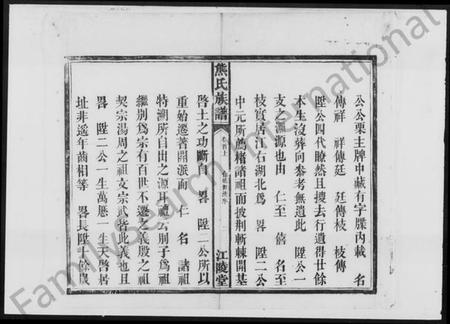 公公栗主牌中藏有字牒內載　名
傳祥　祥傳廷　廷傳枝　枝傳
陞公四代瞭然且搜去行遺得世餘
本生沒葬向參考無遺此　陞公一
支之源也由　仁至　僖名至
枝實居江右湖北爲　畧　陞二公
中元所爲楮諸祖而披荆斬棘開基
熊氏族譜
江陵堂
啓土之功斷自　畧　陞二公所以
重始遷著開派而　仁　名　諸祖
特溯所自出之源耳禮云別子爲祖
繼別爲宗有百世不遷之義殷之祖
契宗湯周之祖文宗武皆此義也且
畧　陞二公一生萬歷一生天啓居
址非遙年齒相等　畧長陞十餘歲
FamilySearch International